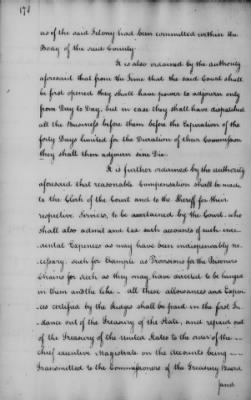 178
as if the said Felony had been committed within the
Body of the said County.
It is also ordained by the authority
aforesaid that from the time that the said Court shall
be first opened they shall have power to adjourn only
from Day to Day, but in case they shall have dispatched
all the Business before them before the Expiration of the
forty Days limited for the Duration of their Commission
they shall then adjourn sine Die.
It is further ordained by the authority
aforesaid that reasonable Compensation shall be made
to the Clerk of the Court and to the Sheriff for their
respective Services, to be ascertained by the Court, who
shall also admit and tax such accounts of such inci-
dental Expences as may have been indispensably ne-
cessary, such for Example as Provisions for the Prisoners
Chains for such as they may have directed to be hanged
in them and the like. all these allowances and Expen-
ces certified by the Judges shall be paid in the first In-
stance out of the Treasury of the State, and repaid out
of the Treasury of the United States to the order of the
chief executive Magistrate on the accounts being
Transmitted to the Commissioners of the Treasury Board
and